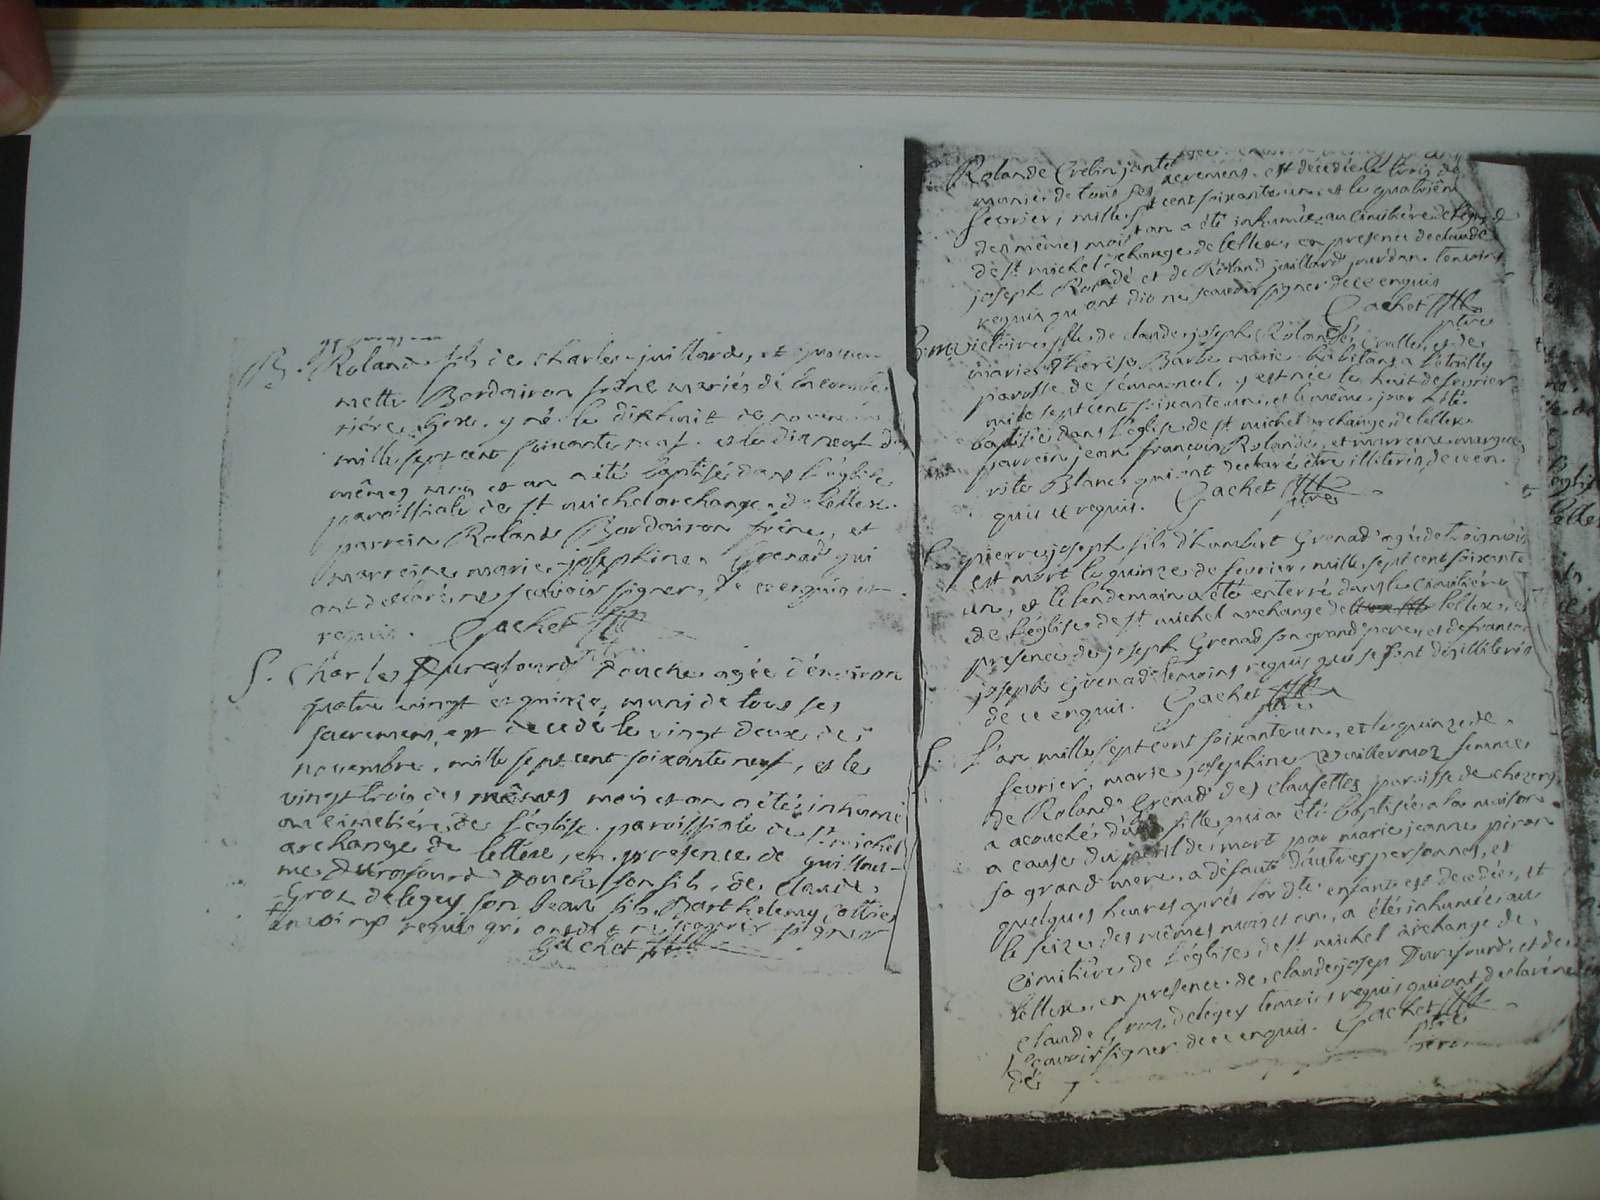 B. Roland fils de Charles juillard, et guillau-
mette Bordairon
mille sept cent soixante neuf. et le dix neuf des
mêmes mois et an a été baptisé dans l'église
paroissiale de st michel archange de lellex.
parrein Roland Bordairon frêne, et
marreine marie josephine Grenad qui
ont declaré ne scavoir signer, de ce enquis et
requis. Gachet ptre
S. Charles Durafourd Douche agée d'environ
quatre vingt et quinze, muni de tous ses
sacremens, est decedé le vingt deux de
novembre, mille sept cent soixante neuf, et le
vingt trois des mêmes mois et an a été inhumé
au cimetière de l'église paroissiale de st michel
archange de lellex, en presence de guillau-
me Durafourd Douche son fils, de Claude
Groz delegey son beau fils Barthelemy
temoins requis qui ont dit ne scavoir signer
Gachet ptre
Rolande
munie de tous ses sacremens est decedée le trois de
fevrier, mille sept cent soixante un, et le quatrième
des mêmes mois et an a été inhumée au cimetière de l'église
de st michel archange de lellex, en presence de claude
joseph Rolandé et de Roland juillard jourdan temoins
requis qui ont dit ne scavoir signer de ce enquis
Gachet ptre
B. victoire fille de claude joseph Rolandé
marie therese Barbe mariés habitans a
paroisse de y est née le huit de fevrier
mille sept cent soixante un, et le même jour a été
baptisée dans l'église de st michel archange de lellex
parrein jean francois Rolandé, et marreine margue-
rite Blanc qui ont declaré être illiterés de ce en-
quis et requis. Gachet ptre
S. pierre joseph fils d'humbert Grenad agée de trois mois
est mort le quinze de fevrier, mille sept cent soixante
un, et le lendemain a été enterré dans le cimetière
de l'église de st michel archange de lellex, en
presence de joseph Grenad son grand pere, et de francois
joseph Grenad temoins requis qui se sont dis illiterés
de ce enquis. Gachet ptre
S. l'an mille sept cent soixante un, et le quinze de
fevrier, marie josephine Vuillermoz femme
de Roland Grenad des clausettes paroisse de chezery
a acouchée d'une fille qui a été baptisée a la maison
a cause du peril de mort par marie jeanne piron
sa grand mere, a défaut d'autres personnes, et
quelques heures après l'enfant est decedée, et
le seize des mêmes mois et an, a été inhumée au
cimitière de l'église de st michel archange de
lellex, en presence de claude joseph Durafourd, et de
claude Groz delegey temoins requis qui ont declaré ne
scavoir signer de ce enquis. Gachet ptre